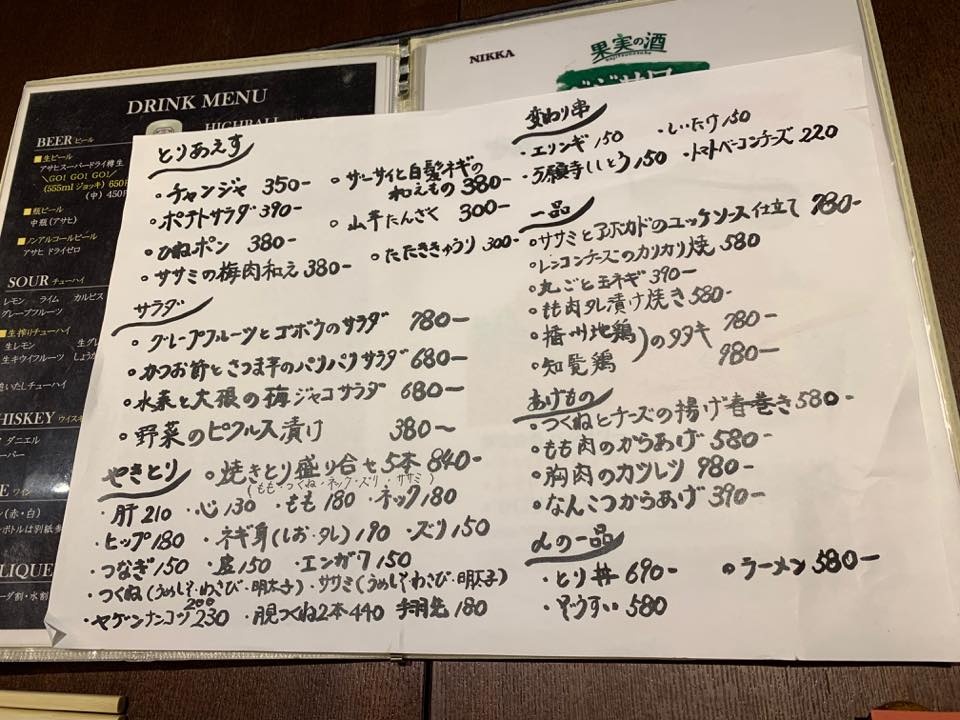 DRINK MENU
HIGHBALL
BEER ビール
■生ビール
アサヒスーパードライ樽生
＼GO! GO! GO!／
(555mlジョッキ) 650
(中) 450
■瓶ビール
中瓶(アサヒ)
■ノンアルコールビール
アサヒ ドライゼロ
SOUR チューハイ
レモン ライム カルピス
グレープフルーツ
■生搾りチューハイ
生レモン
生キウイフルーツ
チューハイ
WHISKEY
ダニエル
ワイン
(赤・白)
ボトルは別紙
NIKKA
果実の酒
とりあえず
・チャンジャ 350-
・ポテトサラダ 390-
・ひねポン 380-
・ササミの梅肉和え 380-
・ザーサイと白髪ネギの
和えもの 380-
・山芋たんざく 300-
・たたききゅうり 300-
サラダ
・グレープフルーツとゴボウのサラダ 780-
・かつお節とさつま芋のパリパリサラダ 680-
・水菜と大根の梅ジャコサラダ 680-
・野菜のピクルス漬け 380-
やきとり
・焼きとり盛り合せ5本 840-
(もも・つくね・ネック・ズリ・ササミ)
・肝 210 ・心 130 ・もも 180 ・ネック 180
・ヒップ 180 ・ネギ身(しお・タレ) 190 ・ズリ 150
・つなぎ 150 ・皮 150 ・エンガワ 150
・つくね(うめしそ・わさび・明太子)・ササミ(うめしそ・わさび・明太子)
200
・ヤゲンナンコツ 230 ・月見つくね2本 440 手羽先 180
変わり串
・エリンギ 150 ・しいたけ 150
・万願寺ししとう 150 ・トマトベーコンチーズ 220
一品
・ササミとアボカドのユッケソース仕立て 780-
・レンコンチーズのカリカリ焼 580
・丸ごと玉ネギ 390-
・もも肉タレ漬け焼き 580-
・播州地鶏
・知覧鶏
)のタタキ
780-
980-
あげもの
・つくねとチーズの揚げ春巻き 580-
・もも肉のからあげ 580-
・胸肉のカツレツ 980-
・なんこつからあげ 390-
〆の一品
・とり丼 690- ・ラーメン 580-
・ぞうすい 580